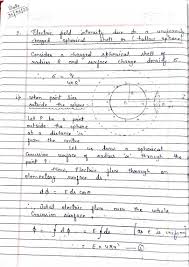 2. Electric field intensity due to a uniformly
charged spherical shell or (hollow sphere)
Consider a charged spherical shell of
radius R and surface charge density σ.
∴ σ = q
4πR²
when point lies
outside the sphere
Let P be a point
outside the sphere
at a distance 'r'
from the centre
we draw a spherical
Gaussian surface of radius 'r' through the
point P.
Now, Electric flux through an
elementary surface ds
dφ = E ds cosθ
∴ Total electric flux over the whole
Gaussian surface
φ = ∮ dφ = E ∮ ds [as E is uniform]
∴ = E 4πr²